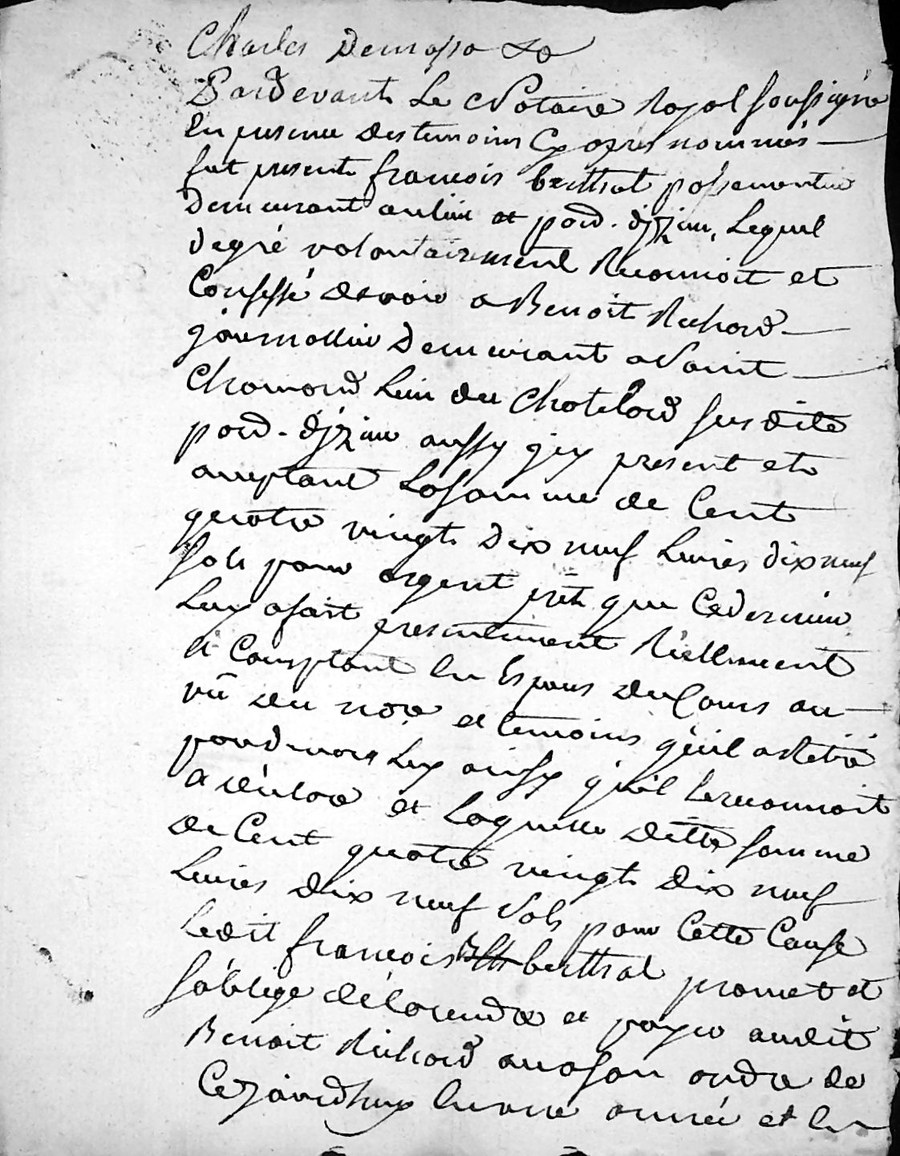 Charles
Pardevant Le Notaire Royal soussigné
En presence des temoins Cy apres nommés
fut present françois berthal passementier
Demeurant au lieu et par d'izieu, Lequel
de gré volontairement Reconnoit et
Confessé devoir a Benoit Richard
journallier Demeurant a Saint
Chamond Lieu du Chatelard susdite
par d'izieu aussy icy present et
acceptant La somme de Cent
quatre vingt Dix neuf Livres dix neuf
sols pour argent prêté que Ce dernier
Luy a fait presentement Réellement
et Comptant En Especes du Cours au
vû du nore et temoins qu'il a Retiré
pardevers Luy ainsy qu'il le reconnoit
a declaré et Laquelle ditte somme
de Cent quatre vingt Dix neuf
Livres dix neuf Sols pour Cette Cause
Ledit françois berthal promet et
s'oblige de la rendre et payer audit
Benoit Richard ou a son ordre de
Cejourd'huy En une année et En